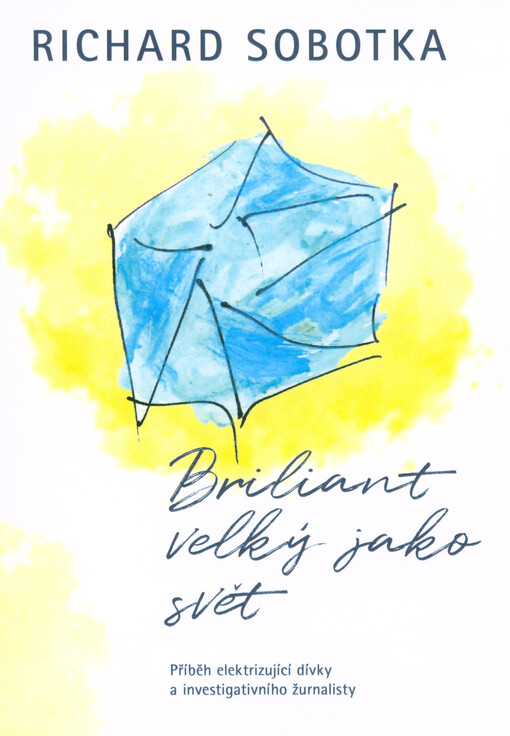 RICHARD SOBOTKA
Briliant
velký jako
svět
Příběh elektrizující dívky
a investigativního žurnalisty